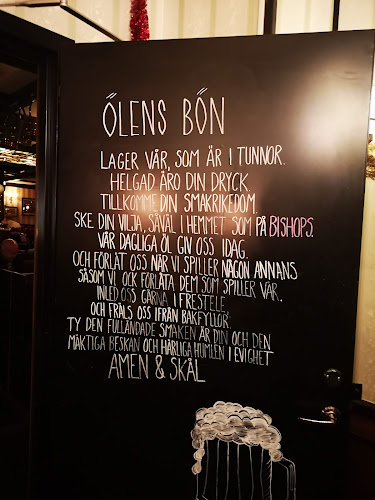 ÖLENS BÖN
LAGER VÅR, SOM ÄR I TUNNOR.
HELGAD ÄRO DIN DRYCK.
TILLKOMME DIN SMAKRIKEDOM.
SKE DIN VILJA, SÅVÄL I HEMMET SOM PÅ BISHOPS.
VÅR DAGLIGA ÖL GIV OSS IDAG.
OCH FÖRLÅT OSS NÄR VI SPILLER NÅGON ANNANS
SÅSOM VI OCK FÖRLÅTA DEM SOM SPILLER VÅR.
INLED OSS GÄRNA I FRESTELSE
OCH FRÄLS OSS IFRÅN BAKFYLLOR.
TY DEN FULLÄNDADE SMAKEN ÄR DIN OCH DEN
MÄKTIGA BESKAN OCH HÄRLIGA HUMLEN I EVIGHET
AMEN & SKÅL